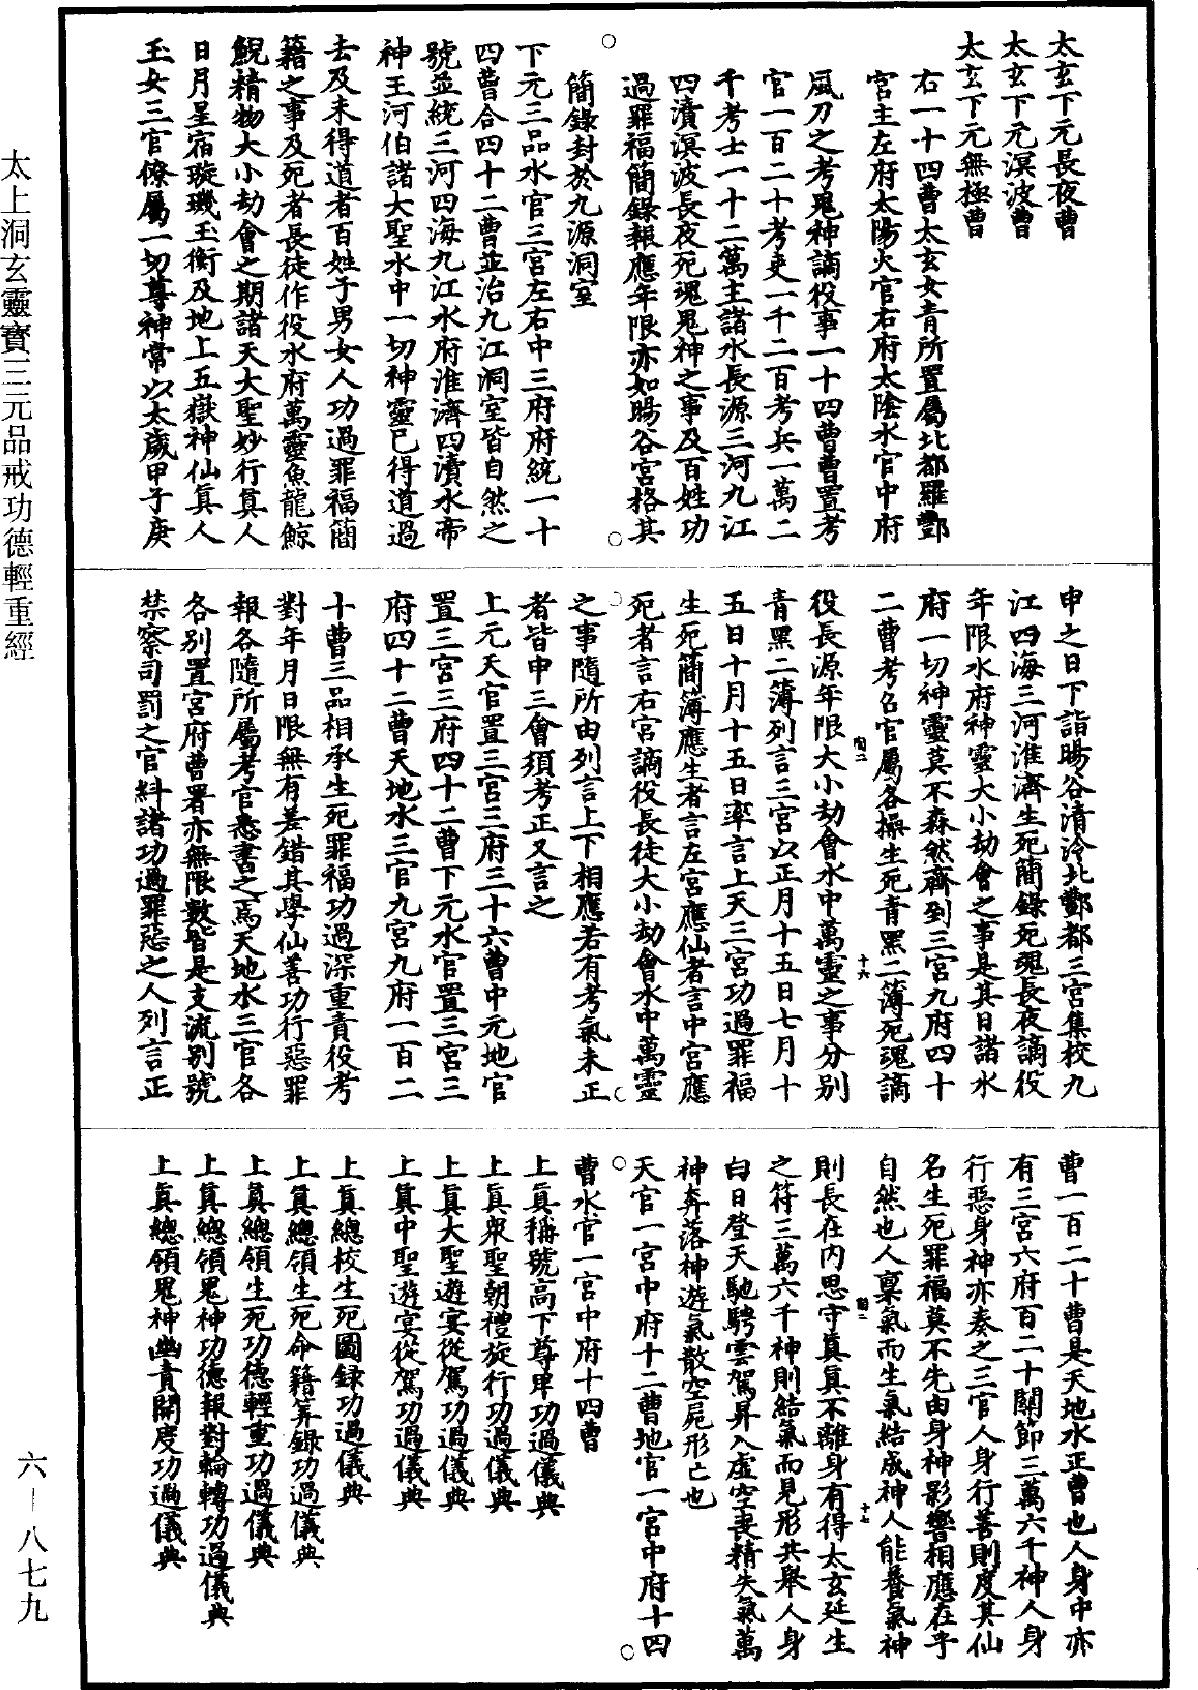 太玄下元長夜曹
太玄下元溟波曹
太玄下元無極曹
右一十四曹太玄女青所置屬北都羅酆
宮主左府太陽火官右府太陰水官中府
風刀之考鬼神謫役事一十四曹曹置考
官一百二十考吏一千二百考兵一萬二
千考士一十二萬主諸水長源三河九江
四瀆溟波長夜死魂鬼神之事及百姓功
過罪福簡錄報應年限亦如暘谷宮格其
簡錄封於九源洞室
下元三品水官三宮左右中三府府統一十
四曹合四十二曹並治九江洞室皆自然之
號並統三河四海九江水府淮濟四瀆水帝
神王河伯諸大聖水中一切神靈已得道過
去及未得道者百姓子男女人功過罪福簡
籍之事及死者長徒作役水府萬靈魚龍鯨
鯢精物大小劫會之期諸天大聖妙行真人
日月星宿璇璣玉衡及地上五嶽神仙真人
玉女三官僚屬一切尊神常以太歲甲子庚
申之日下詣暘谷清泠北酆都三宮集校九
江四海三河淮濟生死簡錄死魂長夜謫役
年限水府神靈大小劫會之事是其日諸水
府一切神靈莫不森然齊到三宮九府四十
二曹考召官屬各操生死青黑二簿死魂謫
役長源年限大小劫會水中萬靈之事分別
青黑二簿列言三宮以正月十五日七月十
五日十月十五日率言上天三宮功過罪福
生死簡簿應生者言左宮應仙者言中宮應
死者言右宮謫役長徒大小劫會水中萬靈
之事隨所由列言上下相應若有考氣未正
者皆申三會須考正又言之
上元天官置三宮三府三十六曹中元地官
置三宮三府四十二曹下元水官置三宮三
府四十二曹天地水三官九宮九府一百二
十曹三品相承生死罪福功過深重責役考
對年月日限無有差錯其學仙善功行惡罪
報各隨所屬考官悉書之焉天地水三官各
各別置宮府曹署亦無限數皆是支流別號
禁察司罰之官糾諸功過罪惡之人列言正
曹一百二十曹是天地水正曹也人身中亦
有三宮六府百二十關節三萬六千神人身
行惡身神亦奏之三官人身行善則度其仙
名生死罪福莫不先由身神影響相應在乎
自然也人稟氣而生氣結成神人能養氣神
則長在內思守真真不離身有得太玄延生
之符三萬六千神則結氣而見形共舉人身
白日登天馳騁雲駕昇入虛空喪精失氣萬
神奔落神遊氣散空屍形亡也
天官一宮中府十二曹地官一宮中府十四
曹水官一宮中府十四曹
上真稱號高下尊卑功過儀典
上真眾聖朝禮旋行功過儀典
上真大聖遊宴從駕功過儀典
上真中聖遊宴從駕功過儀典
上真總校生死圖錄功過儀典
上真總領生死命籍筭錄功過儀典
上真總領生死功德輕重功過儀典
上真總領鬼神功德報對輪轉功過儀典
上真總領鬼神幽責開度功過儀典
太上洞玄靈寶三元品戒功德輕重經
六—八七九